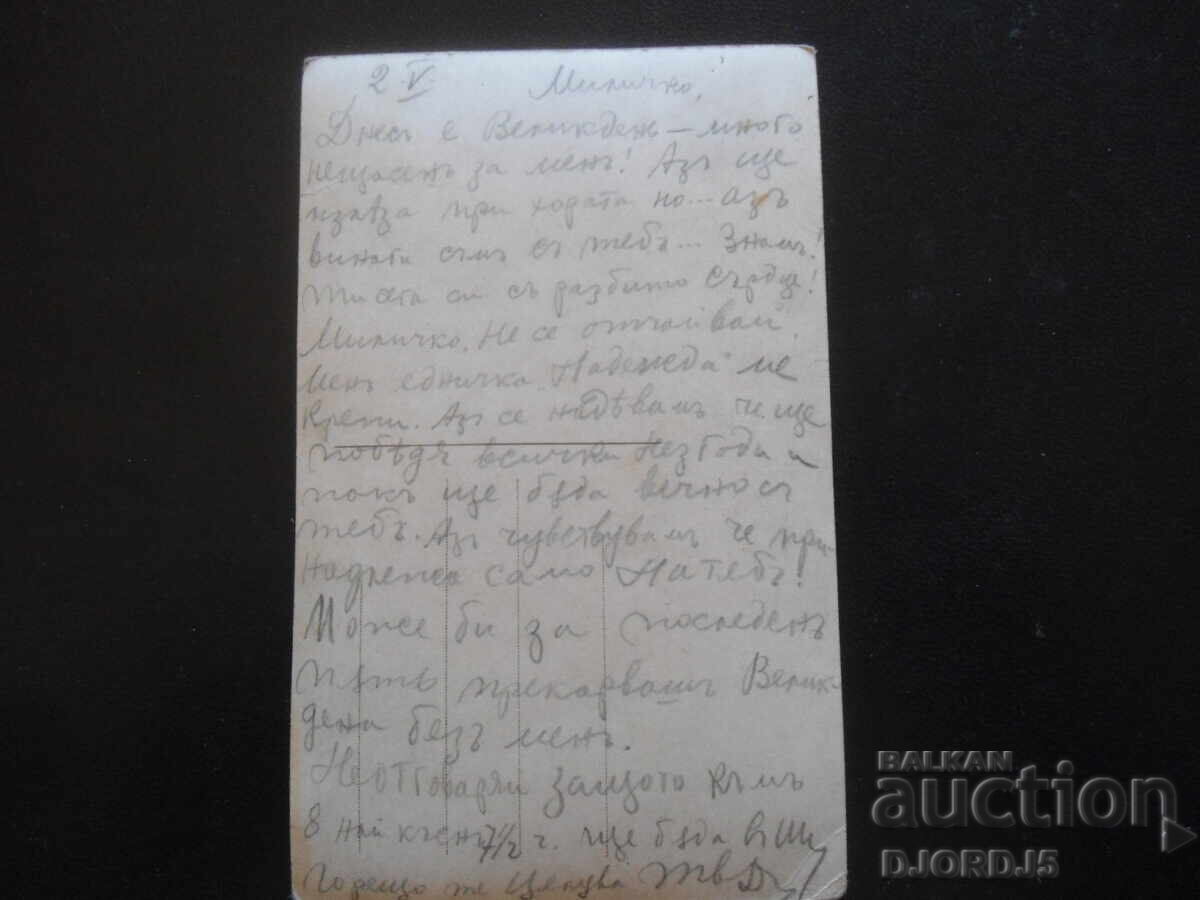 2 V. Миличко,
Днесъ е Великдень – много
нещасенъ за менъ! Азъ ще
излѣза при хората но... азъ
винаги съмъ съ тебъ... Знамъ!
Ти сега си съ разбито сърдце!
Миличко. Не се отчайвай
Менъ едничка Надежда ме
крепи. Азъ се надѣвамъ че ще
победя всички Незгоди и
пакъ ще бѫда вечно съ
тебъ. Азъ чувствувамъ че при-
надлежа само На тебъ!
Може би за последенъ
пѫть прекарвашъ Велик-
дена безъ менъ.
Не отговаряй защото към
8 най късно 7 1/2 ч. ще бѫда въ
Горещо те целува Тв
BALKAN
auction
DJORDJ5